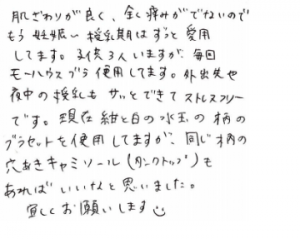 肌ざわりが良く、全く痛みがでないので
もう妊娠〜授乳期はずっと愛用
してます。子供3人いますが、毎回
モーハウスブラ使用してます。外出先や
夜中の授乳もサッとできてストレスフリー
です。現在紺と白の水玉の柄の
ブラセットを使用してますが、同じ柄の
穴あきキャミソール(タンクトップ)も
あればいいなと思いました。
宜しくお願いします☺